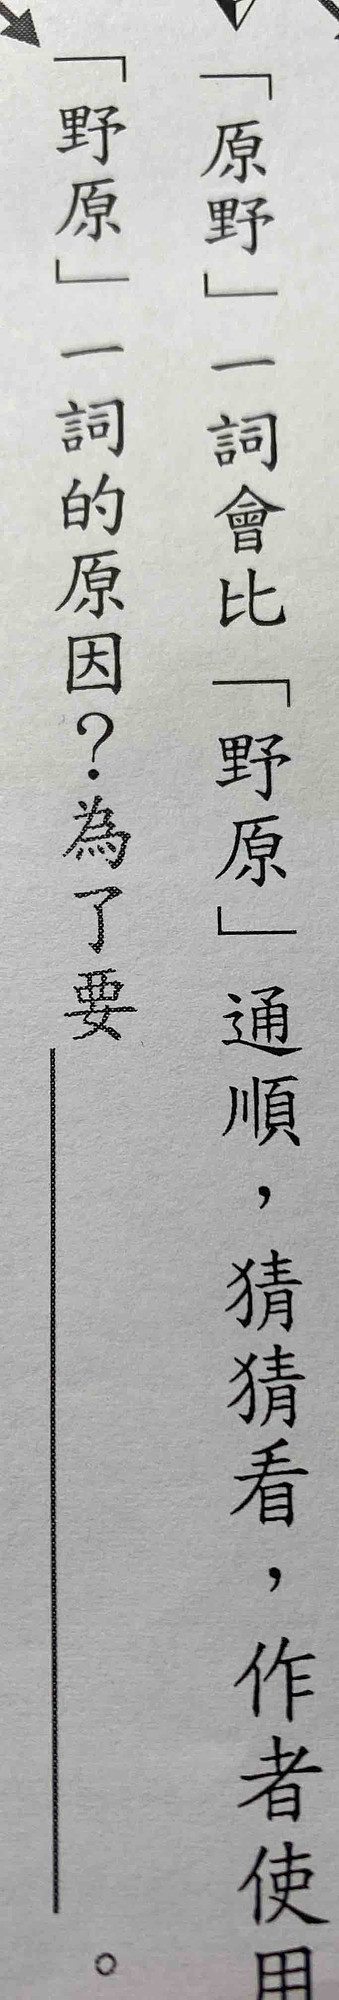 「原野」一詞會比「野原」通順，猜猜看，作者使用
「野原」一詞的原因？為了要。